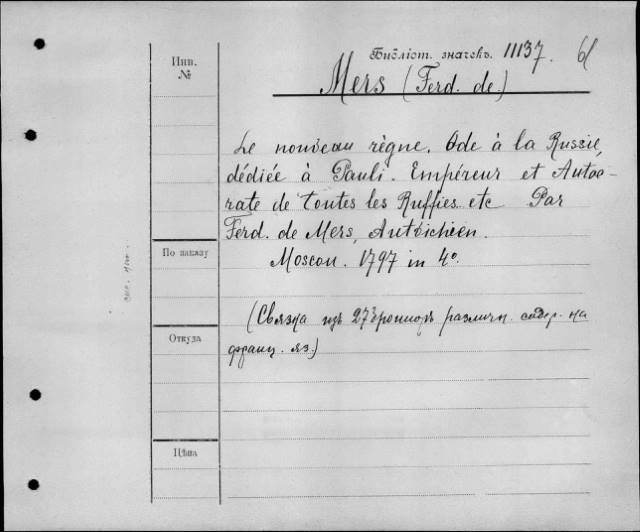 Инв.
№
Библіот. значекъ. 11137. 61
Mers (Ferd. de.)
Le nouveau règne. Ode à la Russie,
dédiée à Paul i. Empéreur et Autoc-
rate de toutes les Ruffies etc Par
Ferd. de Mers, Autrichien.
Moscou. 1797 in 4°.
По заказу
(Связка изъ 27 брошюръ различн. содер. на
Откуда
франц. яз.)
Цѣна